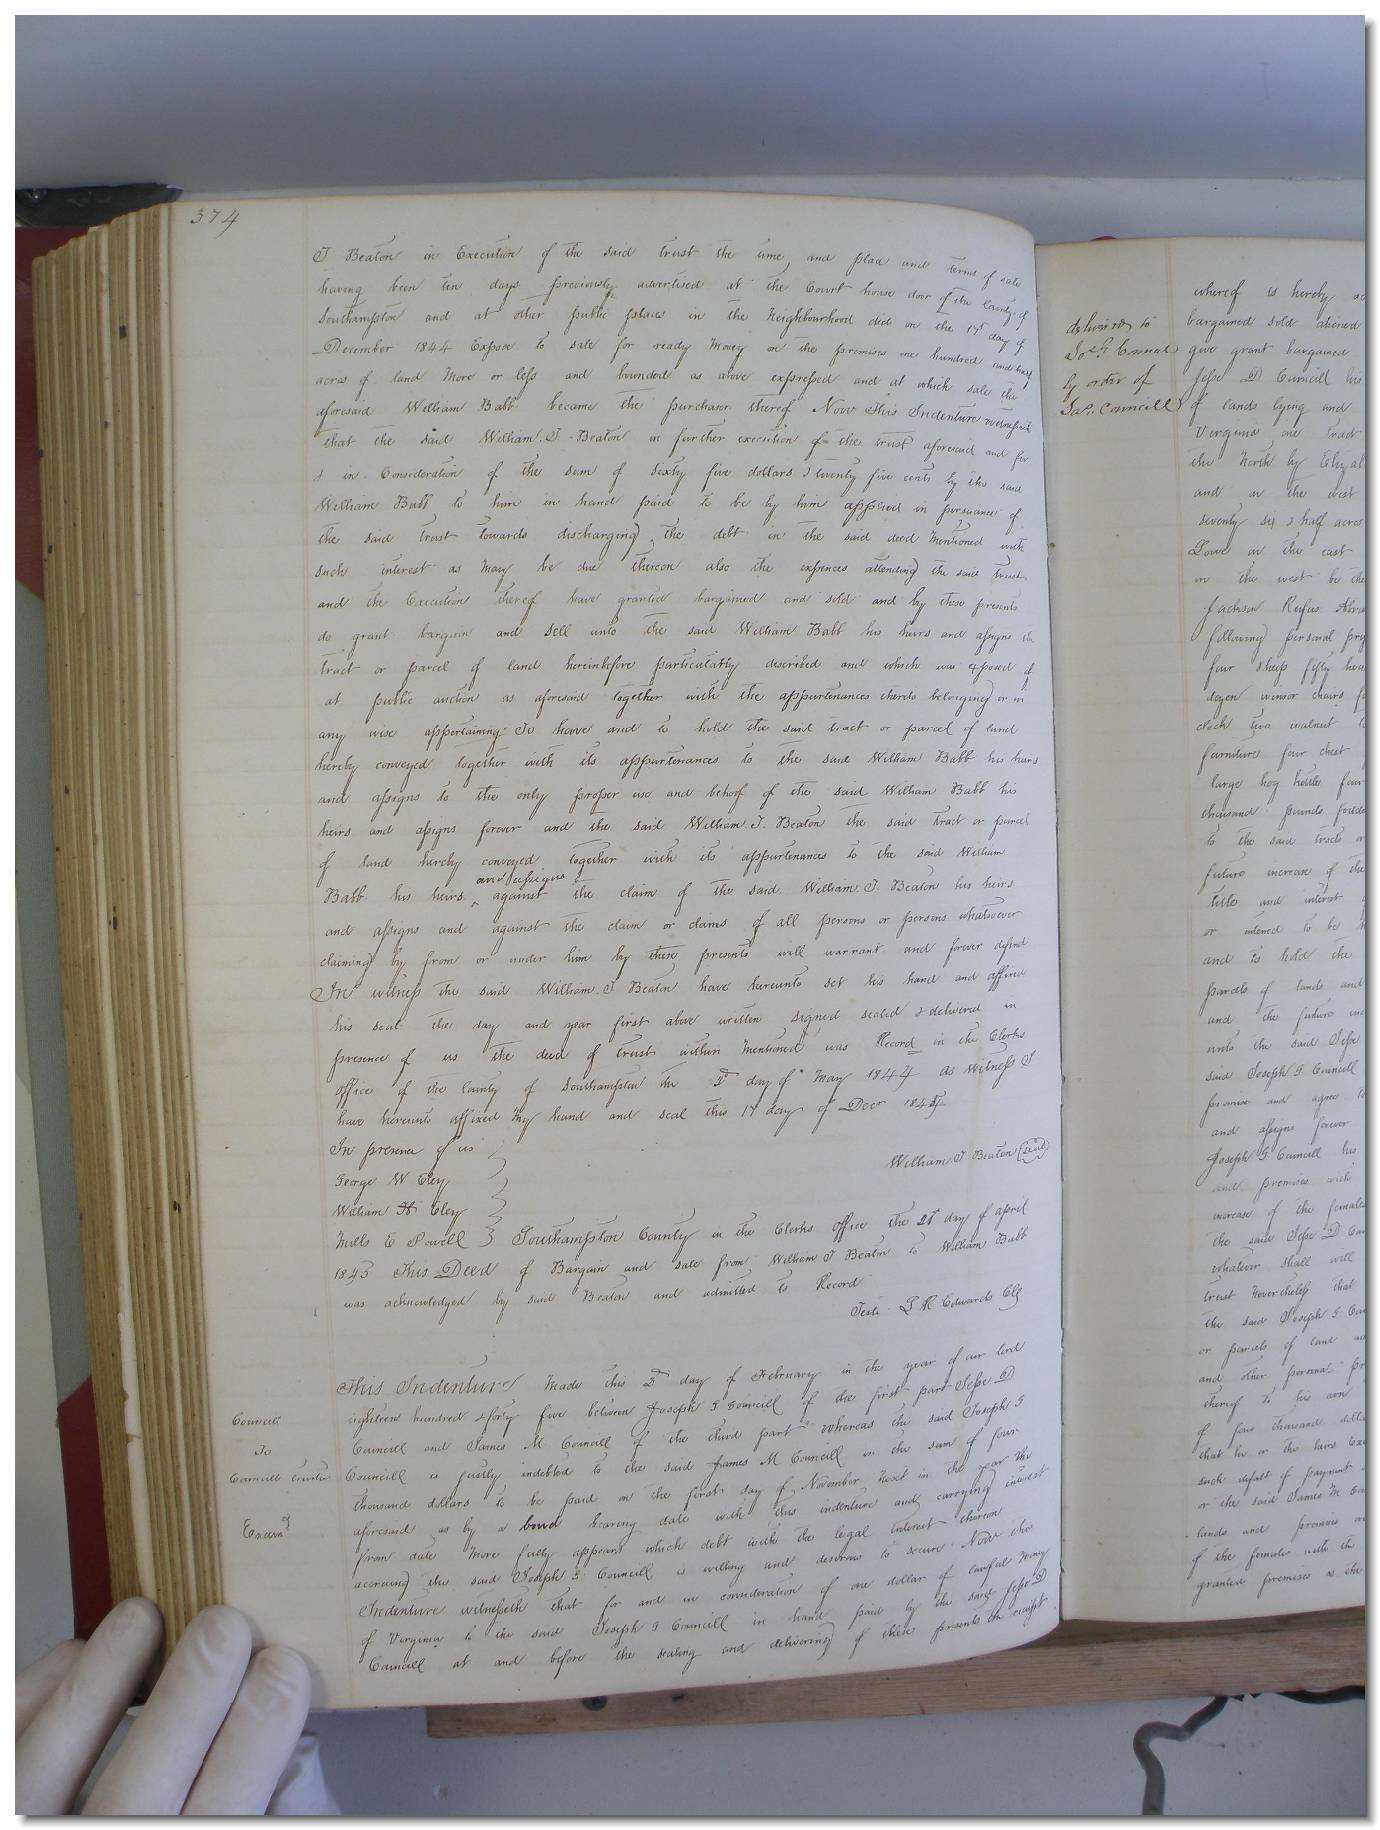 374
T Beaton in Execution of the said trust the time, and place and terms of sale
having been ten days previously advertised at the Court house door of the County of
Southampton and at other public places in the Neighbourhood did on the 17 day of
December 1844 Expose to sale for ready Money on the premises one hundred and
acres of land More or less and bounded as above expressed and at which sale the
aforesaid William Babb became the purchaser thereof Now This Indenture witnesseth
that the said William. T. Beaton in further execution of the trust aforesaid and for
& in Consideration of the sum of Sixty five dollars & twenty five cents by the said
William Babb to him in hand paid to be by him applied in pursuance of
the said trust towards discharging the debt in the said deed Mentioned with
such interest as May be due thereon also the expences attending the said trust
and the Execution thereof have granted bargained and sold and by these presents
do grant bargain and sell unto the said William Babb his heirs and assigns the
tract or parcel of land hereinbefore particularly described and which was exposed of
at public auction as aforesaid together with the appurtenances thereto belonging or in
any wise appertaining To have and to hold the said tract or parcel of land
hereby conveyed together with its appurtenances to the said William Babb his heirs
and assigns to the only proper use and behoof of the said William Babb his
heirs and assigns forever and the said William. T. Beaton the said tract or parcel
of land hereby conveyed together with its appurtenances to the said William
and assigns
Babb his heirs ^ against the claim of the said William. T. Beaton his heirs
and assigns and against the claim or claims of all persons or persons whatsoever
claiming by from or under him by these presents will warrant and forever defend
In witness the said William. T Beaton have hereunto set his hand and affixed
his seal the day and year first above written signed sealed & delivered in
presence of us the deed of trust within Mentioned was Record in the Clerks
office of the County of Southampton the day of May 1844 As Witness I
have hereunto affixed My hand and seal this 17 day of Decr 1844
In presence of us
William. T Beaton (seal)
George W Eley
William H Eley
Mills E Powell } Southampton County in the Clerks office the 21st day of april
1845 This Deed of Bargain and sale from William T Beaton to William Babb
was acknowledged by said Beaton and admitted to Record
Teste L R Edwards Clk
This Indenture Made this day of February in the year of our lord
eighteen hundred & forty five between Joseph G Councill of the first part Jesse D
Councill and James M Councill of the third part Whereas the said Joseph G
Councill is justly indebted to the said James M Councill in the sum of four
thousand dollars to be paid on the first day of November Next in the year the
aforesaid as by a bond bearing date with this indenture and carrying interest
from date More fully appears which debt with the legal interest thereon
accruing the said Joseph G Councill is willing and desirous to secure Now this
Indenture witnesseth that for and in consideration of one dollar of lawful money
of Virginia to the said Joseph G Councill in hand paid by the said Jesse D
Councill at and before the sealing and delivering of these presents the receipt
Councill
To
Councill trustee
Examd
delivered to
Jos G Council
by order of
Jas. Councill
whereof is hereby
bargained sold aliened
give grant bargained
Jesse D Councill his
of lands lying and
Virginia one tract
the North by
and on the west
seventy six & half acres
Lowe on the east
on the west be the
Jackson Rufus
following personal
four sheep fifty
dozen winsor chairs
clock two walnut
furniture four chest
large hog kettle four
thousand pounds
to the said tracts
future increase of the
title and interest
or intered to be
and to hold the
parcels of lands and
and the future
unto the said Jesse
said Joseph G Councill
promise and agree
and assigns forever
Joseph G Councill his
and premises with
increase of the females
the said Jesse D
whatever shall will
trust Nevertheless that
the said Joseph G
or parcels of land
and other personal
thereof to his own
of four thousand
that he or the heirs
such default of payment
or the said James M
lands and premises
of the females with the
granted premises as the